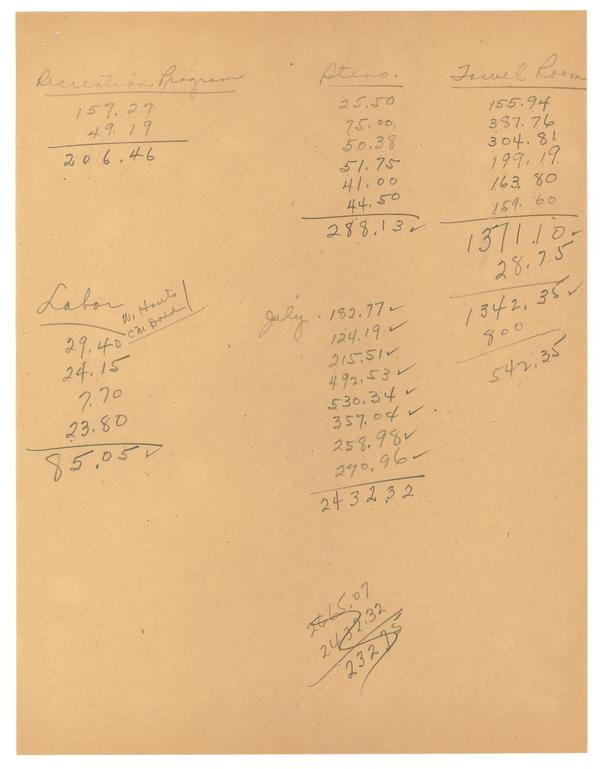 Recreation Program
157.27
49.19
206.46
Steno.
25.50
75.00
50.38
51.75
41.00
44.50
288.13 ✓
Towel Room
155.94
387.76
304.81
199.19
163.80
159.60
1371.10 ✓
28.75
1342.35 ✓
800
542.35
Labor
29.40
24.15
7.70
23.80
85.05 ✓
July
182.77 ✓
124.19 ✓
215.51 ✓
492.53 ✓
530.34 ✓
357.04 ✓
258.98 ✓
270.96 ✓
2432.32
2665.07
2432.32
232.75